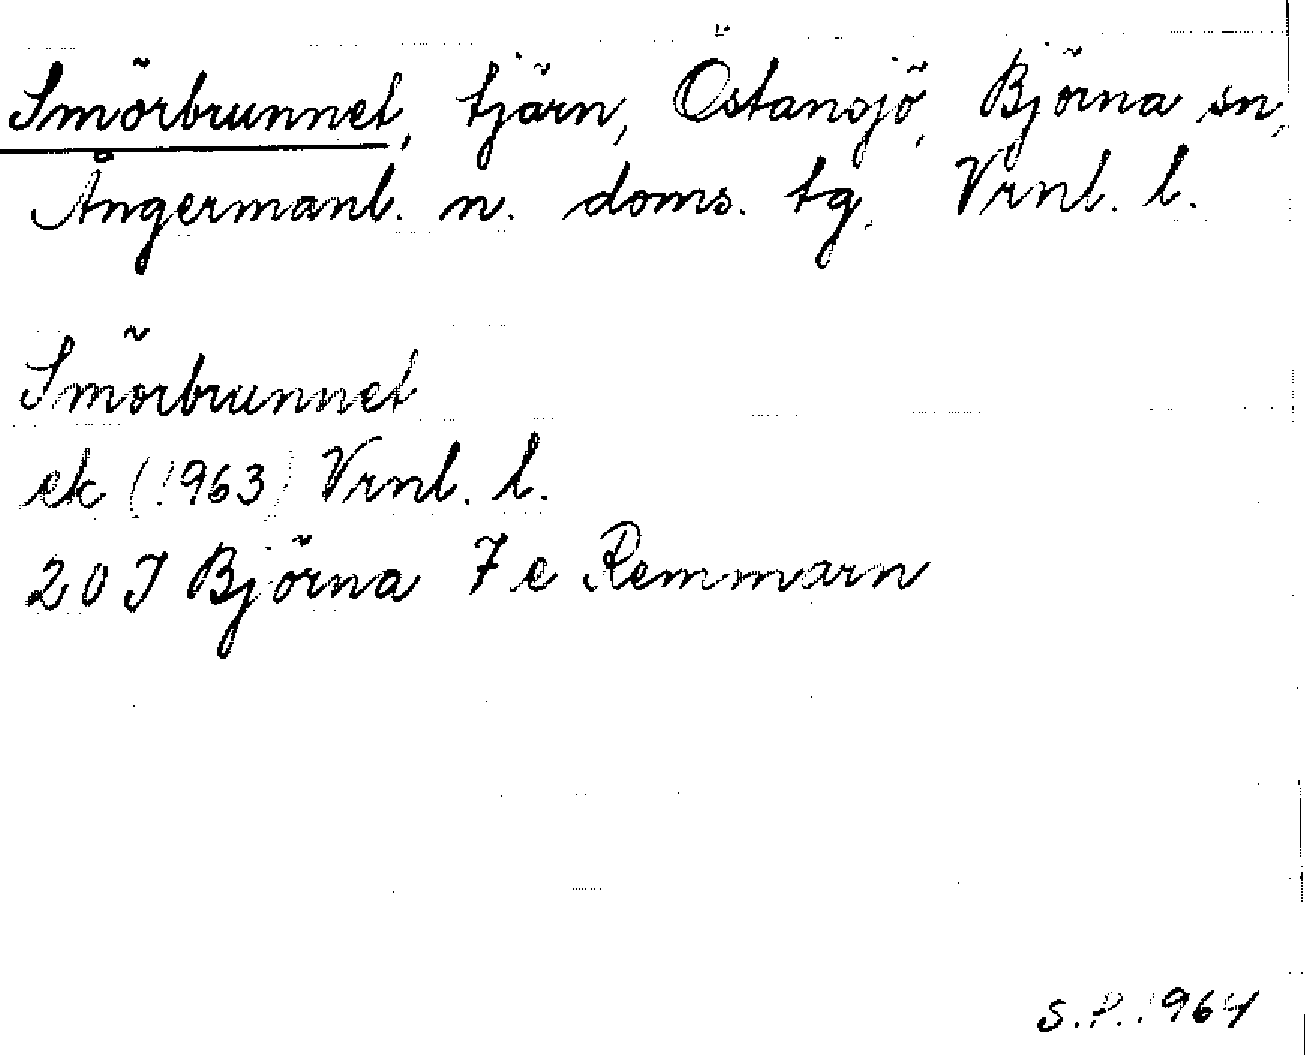 Smörbrunnet, tjärn, Östansjö, Björna sn,
Ångermanl. n. doms. tg. Vrnl. l.
Smörbrunnet
ek (1963) Vrnl. l.
20 J Björna 7 e Remmarn
S.P. 1964